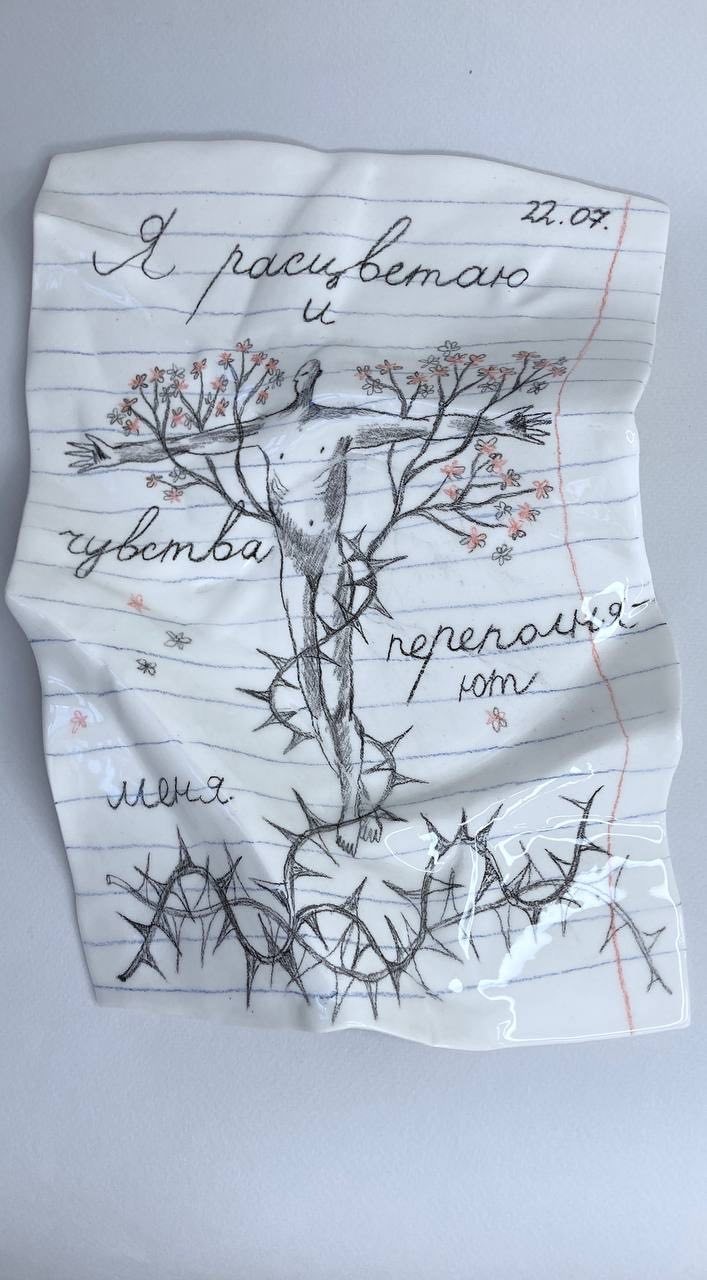 22.07.
Я расцветаю
и
чувства
переполня-
ют
меня.